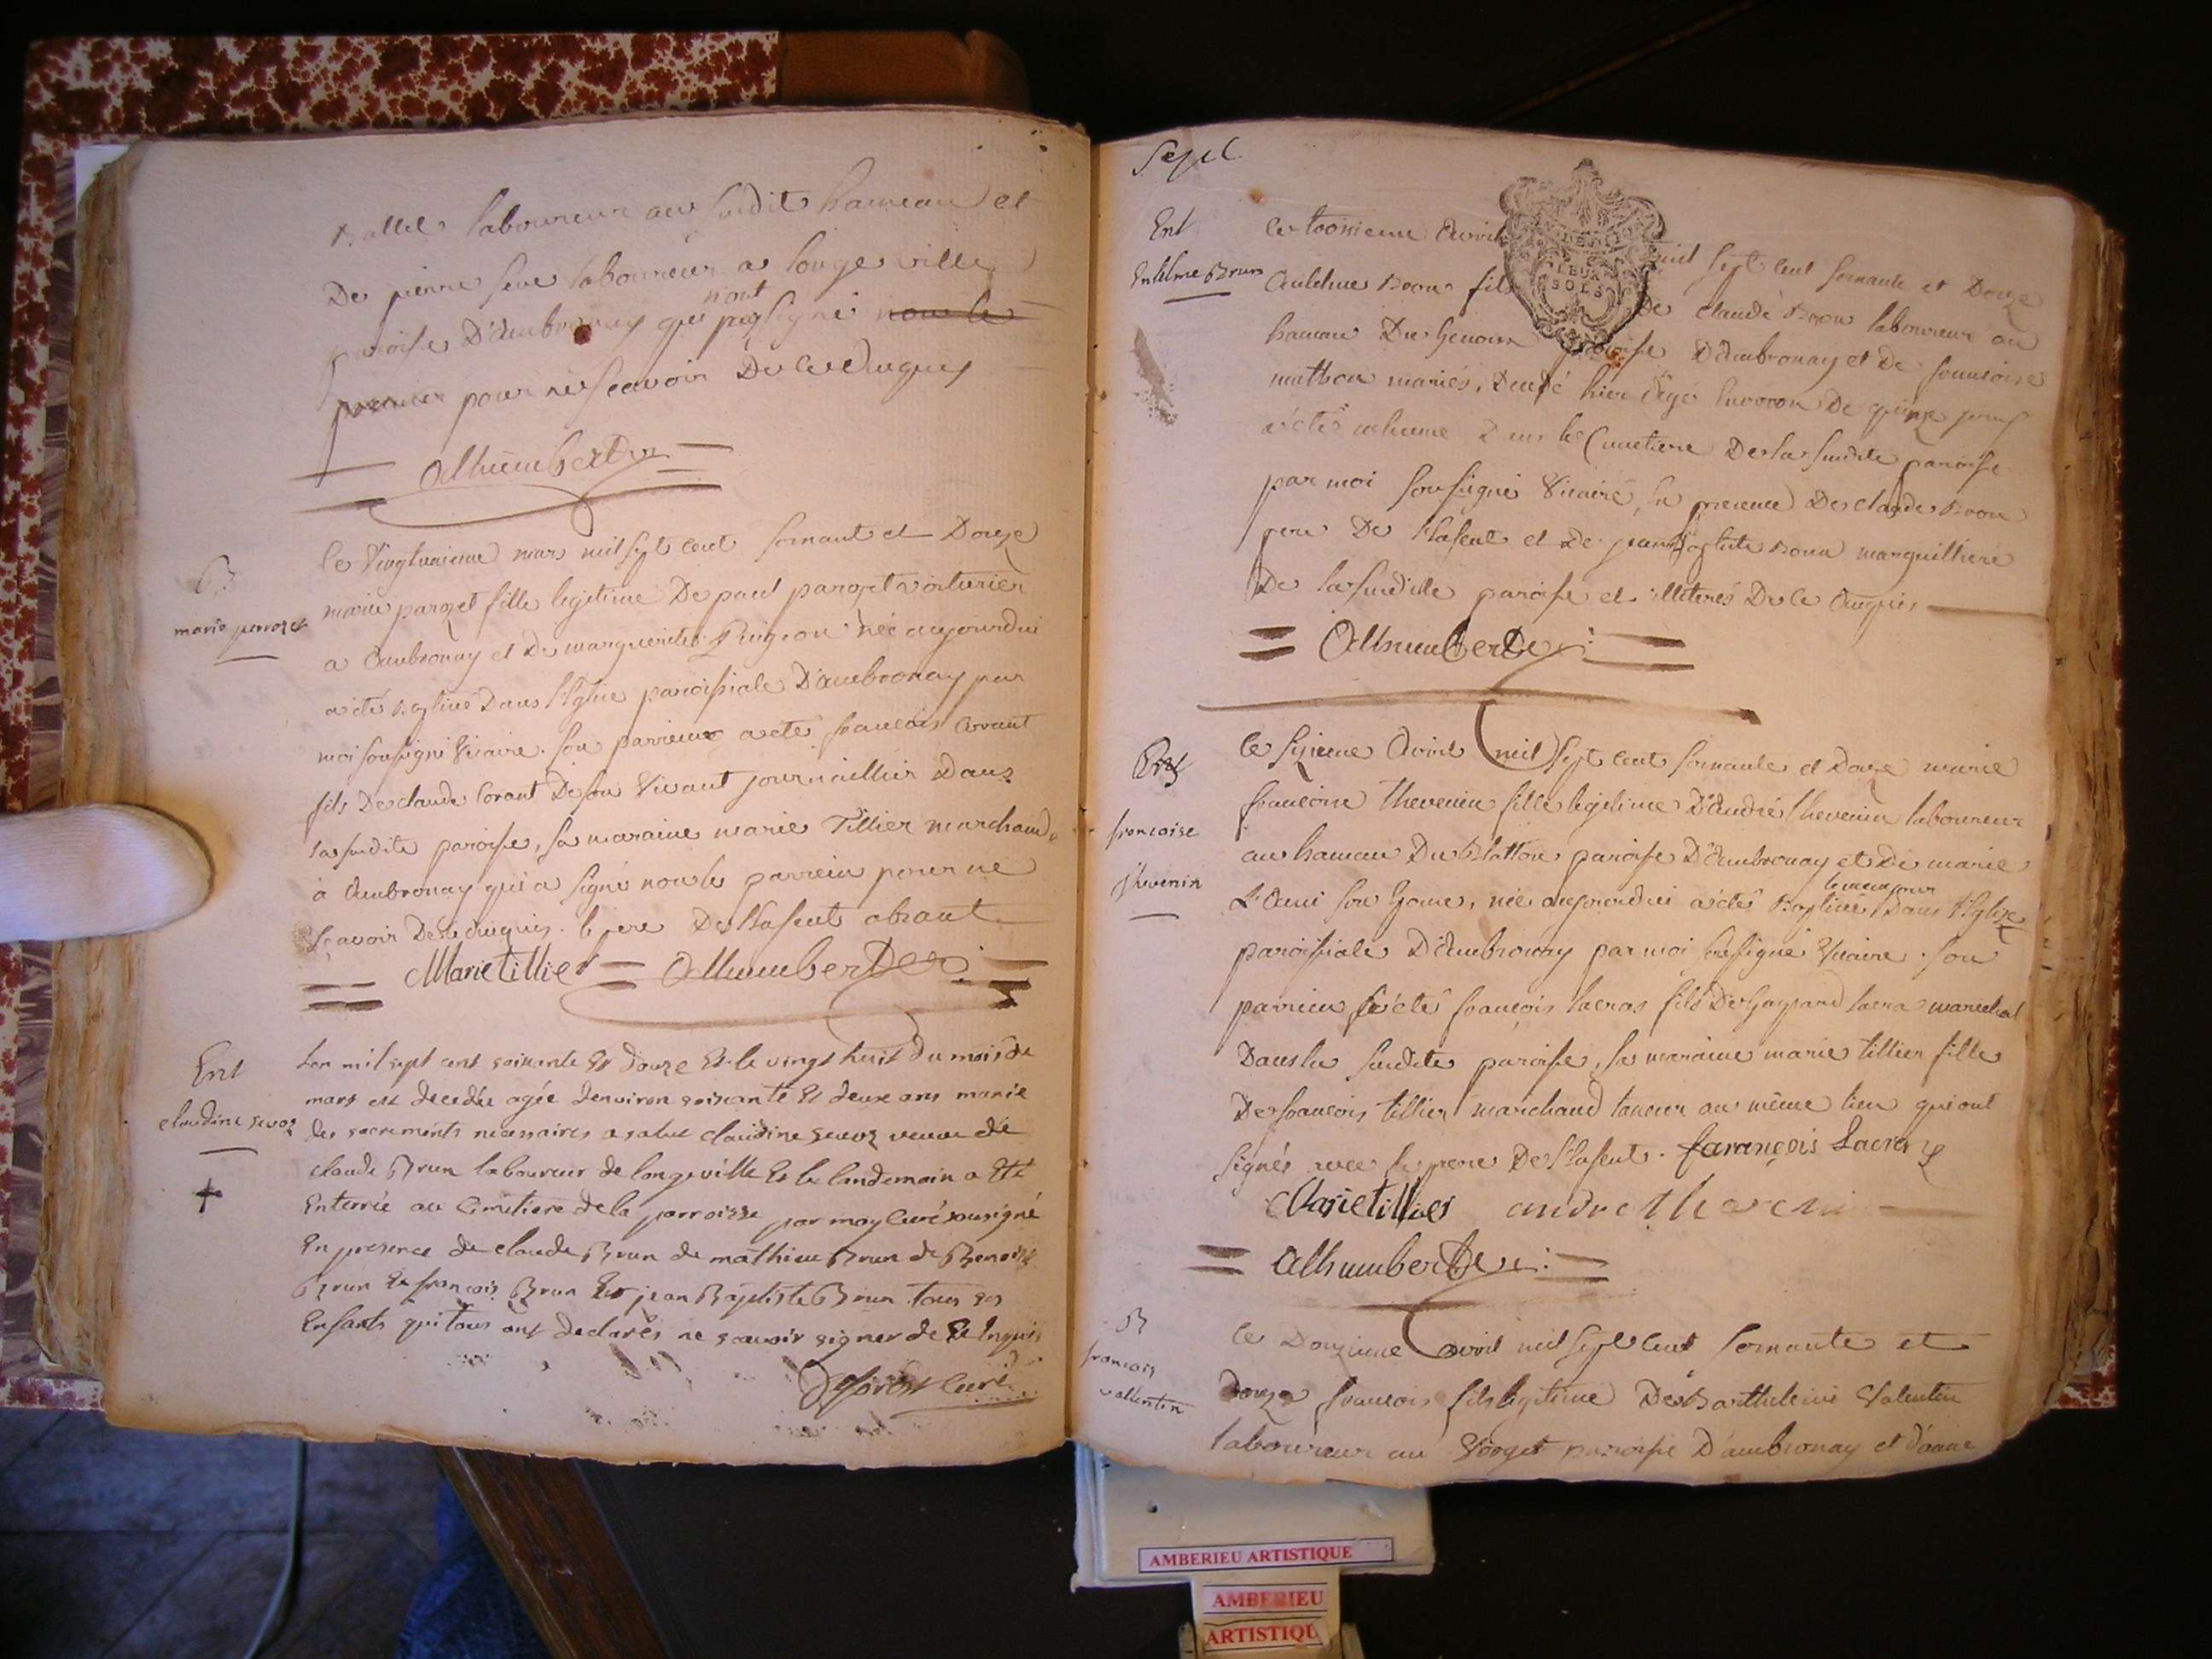 Ballet laboureur au susdit hameau et
De pierre seve laboureur a longe ville
paroisse D'ambronay qui n'ont pas signé nom le
premier pour ne scavoir De ce Enquis
Alhumbert Vre
B
marie perrozet
le Vingtunieme mars mil sept cent soixante et Douze
marie parozet fille legitime De paul parozet voiturier
a Ambronay et De marguerite née aujourdui
a été Baptisé Dans l'Eglise paroissiale D'ambronay par
moi soussigné Vicaire. son parrein a eté francois Corant
fils De claude Corant De son Vivant journaillier Dans
la susdite paroisse, sa maraine marie Tillier marchande
à Ambronay qui a signé non le parrein pour ne
sçavoir De ce enquis. le pere De l'Enfent absant
Marie tillier Alhumbert Vre
Ent
claudine sevoz
L'an mil sept cent soixante Et douze Et le vingt huit du mois de
mars est decedée agée denviron soixante Et deux ans munie
des sacrements necessaires a salut claudine sevoz veuve de
claude Brun laboureur de longeville Et le landemain a Eté
Enterrée au Cimetiere de la parroisse par moy Curé sousigné
En presence de claude Brun de mathieu Brun de Benoist
Brun Et francois Brun Et jean Baptiste Brun tous ses
Enfants qui tous ont declarés ne scavoir signer de Ce Enquis
Curé
Sept
Ent
Entelme Brun
Le troisieme Avril mil sept cent soixante et Douze
Antelme Brun fils De claude Brun laboureur au
hameau Du Genoux paroisse D'Ambronay et De francoise
mathon mariés, Decedé hier âgé Environ De quinze jours
a été inhumé Dans le Cimetiere De la susdite paroisse
par moi soussigné Vicaire, En presence De claude Brun
pere De l'Enfent et De jean Baptiste Brun marguilliere
De la susditte paroisse et illiterés De ce Enquis
Alhumbert Vre
Bapt
francoise
thevenin
Le sixieme Avril mil sept cent soixante et Douze marie
francoise thevenin fille legitime D'André thevenin laboureur
au hameau Du Blatton paroisse D'Ambronay et De marie
son Epouse, née aujourdui a été Baptisée le meme jour Dans l'Eglise
paroissiale D'Ambronay par moi soussigné Vicaire. son
parrien a été françois lacras fils De Gaspard lacra marechal
Dans la susdite paroisse, sa maraine marie tillier fille
De francois tillier marchand taneur au même lieu qui ont
signés avec le pere De l'Enfent. farançois Lacraz
Marie tillier andre thevenin
Alhumbert Vre
B
francois
vallentin
Le Douzieme avril mil sept cent soixante et
Douze francois fils legitime De Barthelemi Valentin
laboureur au Vorget paroisse D'ambronay et d'anne
AMBERIEU ARTISTIQUE
AMBERIEU
ARTISTIQU